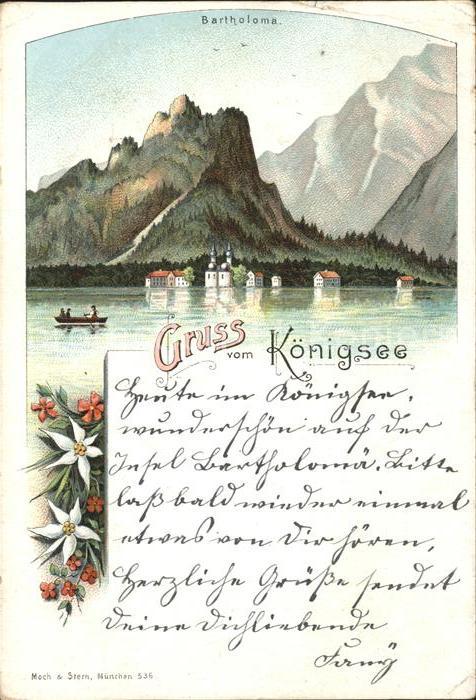 Bartholoma.
Gruss vom Königsee
Heute im Königssee,
wunderschön auf der
Insel Bartholomä. Bitte
laß bald wieder einmal
etwas von Dir hören,
Herzliche Grüße sendet
Deine Dichliebende
Fany
Moch & Stern, München 536